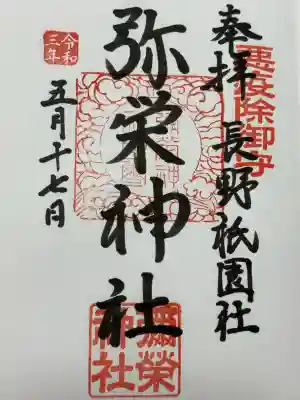 悪疫除御守
奉拝 長野祇園社
弥栄神社
彌榮神社
令和三年
五月十七日